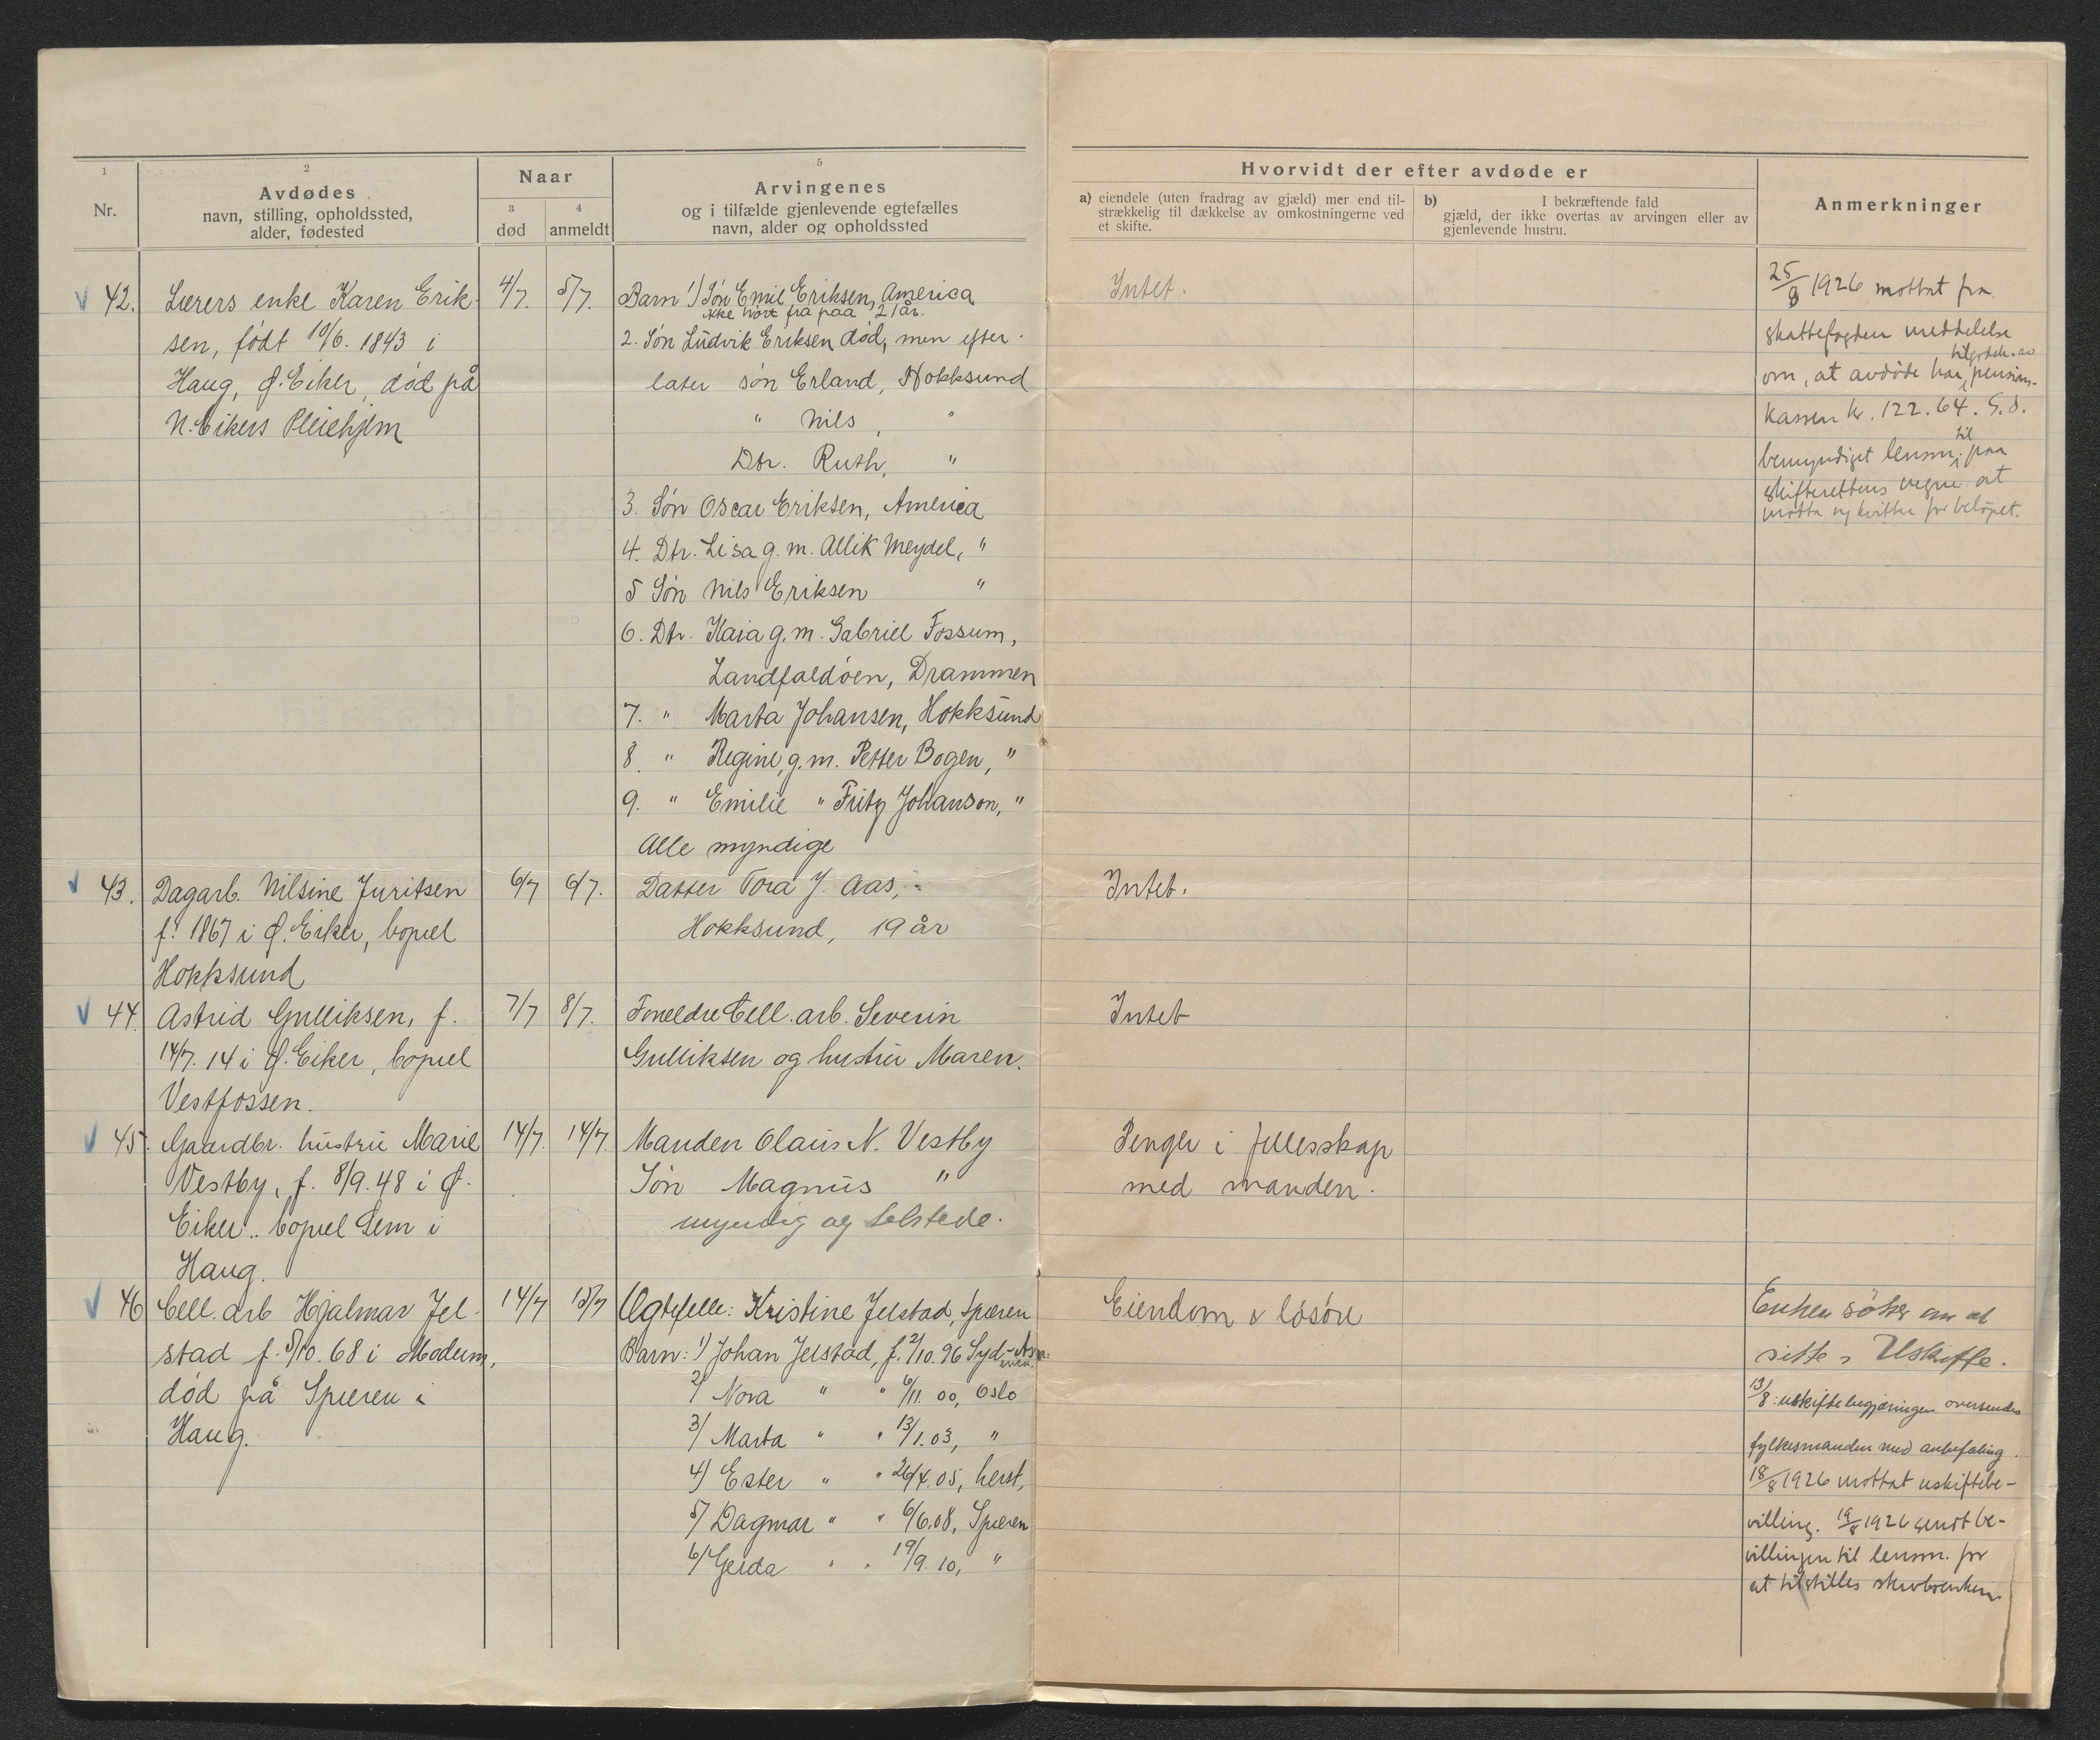 1
Nr.
2
Avdødes
navn, stilling, opholdssted,
alder, fødested
Naar
3
død
4
anmeldt
5
Arvingenes
og i tilfælde gjenlevende egtefælles
navn, alder og opholdssted
Hvorvidt der efter avdøde er
a) eiendele (uten fradrag av gjæld) mer end til-
strækkelig til dækkelse av omkostningerne ved
et skifte.
b) I bekræftende fald
gjæld, der ikke overtas av arvingen eller av
gjenlevende hustru.
Anmerkninger
42. Lærers enke Karen Erik-
sen, født 10/6. 1843 i
Haug, Ø. Eiker, død på
N. Eikers Pleiehjem
4/7. 5/7.
Barn 1) Søn Emil Eriksen, America
ikke hørt fra paa 21 år.
2. Søn Ludvik Eriksen død, men efter-
later søn Erland, Hokksund
" Nils, "
Dtr. Ruth, "
3. Søn Oscar Eriksen, America
4. Dtr. Lisa g. m. Allik Meydel, "
5 Søn Nils Eriksen "
6. Dtr. Kaia g. m. Gabriel Fossum,
Landfaldøen, Drammen
7. " Marta Johansen, Hokksund
8. " Regine, g. m. Petter Bogen, "
9. " Emilie " Fritz Johanson, "
Alle myndige
Intet.
25/8 1926 mottat fra
skattefogden meddelelse
om, at avdøde har tilgode av pensions-
kassen kr. 122.64. S. d.
bemyndiget lensm. til paa
skifterettens vegne at
motta og kvittere for beløpet.
43. Dagarb. Nilsine Juritsen
f. 1867 i Ø. Eiker, bopæl
Hokksund
6/7 6/7.
Datter Tora J. Aas,
Hokksund, 19 år
Intet.
44. Astrid Gulliksen, f.
14/7. 14 i Ø. Eiker, bopæl
Vestfossen.
7/7 8/7.
Foreldre Cell. arb. Severin
Gulliksen og hustru Maren.
Intet
45. Gaardbr. hustru Marie
Vestby, f. 8/9. 48 i Ø.
Eiker.. bopæl Sem i
Haug.
14/7. 14/7.
Manden Olaus N. Vestby
Søn Magnus "
myndig og selstede.
Penger i fellesskap
med manden.
46 Cell. arb Hjalmar Jel-
stad f. 5/10. 68 i Modum,
død på Spæren i
Haug.
14/7 15/7
Ægtefelle: Kristine Jelstad, Spæren
Barn: 1) Johan Jelstad, f. 2/10. 96 Syd-Am.
2) Nora " " 6/11. 00, Oslo
3) Marta " " 13/1. 03, "
4) Ester " " 26/4. 05, herst,
5) Dagmar " " 6/6. 08, Spæren
6) Gerda " " 19/9. 10, "
Eiendom & løsøre
Enken søker om at
sitte i Uskifte.
13/8: uskiftebegjæringen oversendes
fylkesmanden med anbefaling.
18/8 1926 mottat uskiftebe-
villing. 19/8 1926 sendt be-
villingen til lensm. for
at tilstilles